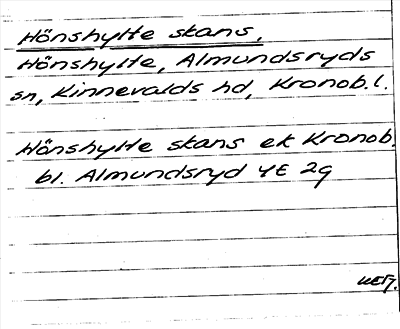 Hönshylte skans,
Hönshylte, Almundsryds
sn, Kinnevalds hd, Kronob. l.
Hönshylte skans ek Kronob.
bl. Almundsryd 4E 2g